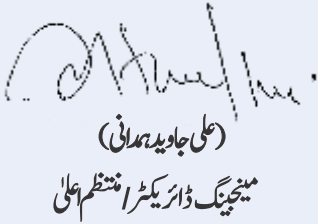 (علی جاوید ہمدانی)
مینجنگ ڈائریکٹر/منتظم اعلیٰ